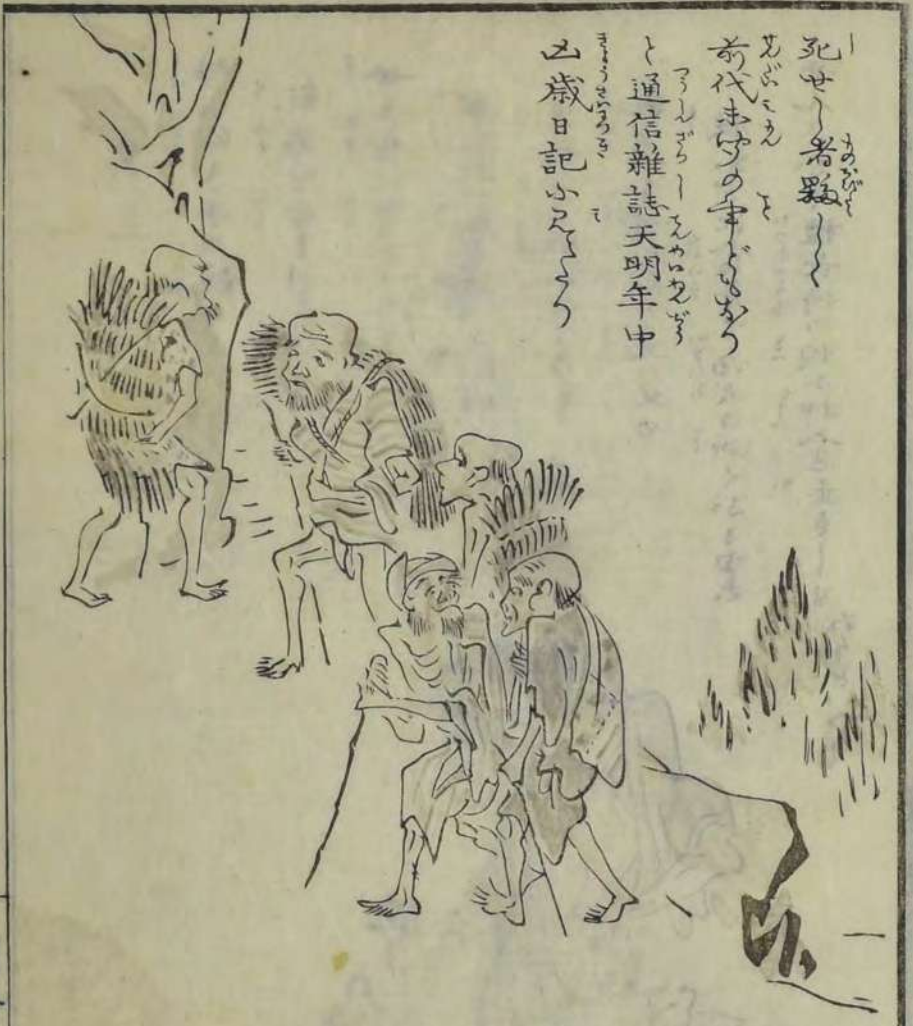 死せし者夥しく
前代未聞の事どもなり
と通信雑誌天明年中
凶歳日記に見えたり